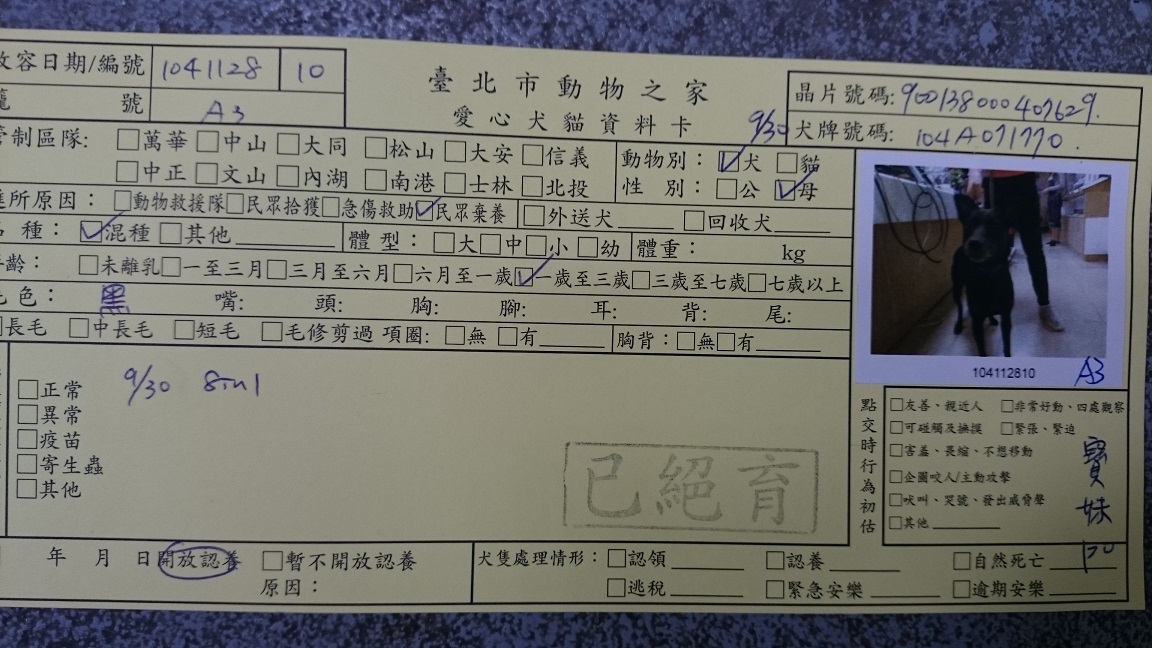 收容日期/編號 1041128 10
籠號 A3
臺北市動物之家
愛心犬貓資料卡
晶片號碼: 900138000407629.
9/30 犬牌號碼: 104A071770.
管制區隊: □萬華 □中山 □大同 □松山 □大安 □信義
□中正 □文山 □內湖 □南港 □士林 □北投
動物別: ☑犬 □貓
性別: □公 ☑母
進所原因: □動物救援隊 □民眾拾獲 □急傷救助 ☑民眾棄養 □外送犬 □回收犬
品種: ☑混種 □其他 體型: □大 □中 □小 □幼 體重: kg
年齡: □未離乳 □一至三月 □三月至六月 □六月至一歲 ☑一歲至三歲 □三歲至七歲 □七歲以上
毛色: 黑 嘴: 頭: 胸: 腳: 耳: 背: 尾:
□長毛 □中長毛 □短毛 □毛修剪過 項圈: □無 □有 胸背: □無 □有
104112810 A3
□正常 9/30 8in1
□異常
□疫苗
□寄生蟲
□其他
已絕育
點交時行為初估
□友善、親近人 □非常好動、四處觀察
□可碰觸及撫摸 □緊張、緊迫
□害羞、畏縮、不想移動
□企圖咬人/主動攻擊
□吠叫、哭號、發出威脅聲
□其他
寶妹
年 月 日 開放認養 □暫不開放認養
原因:
犬隻處理情形: □認領 □認養 □自然死亡
□逃稅 □緊急安樂 □逾期安樂